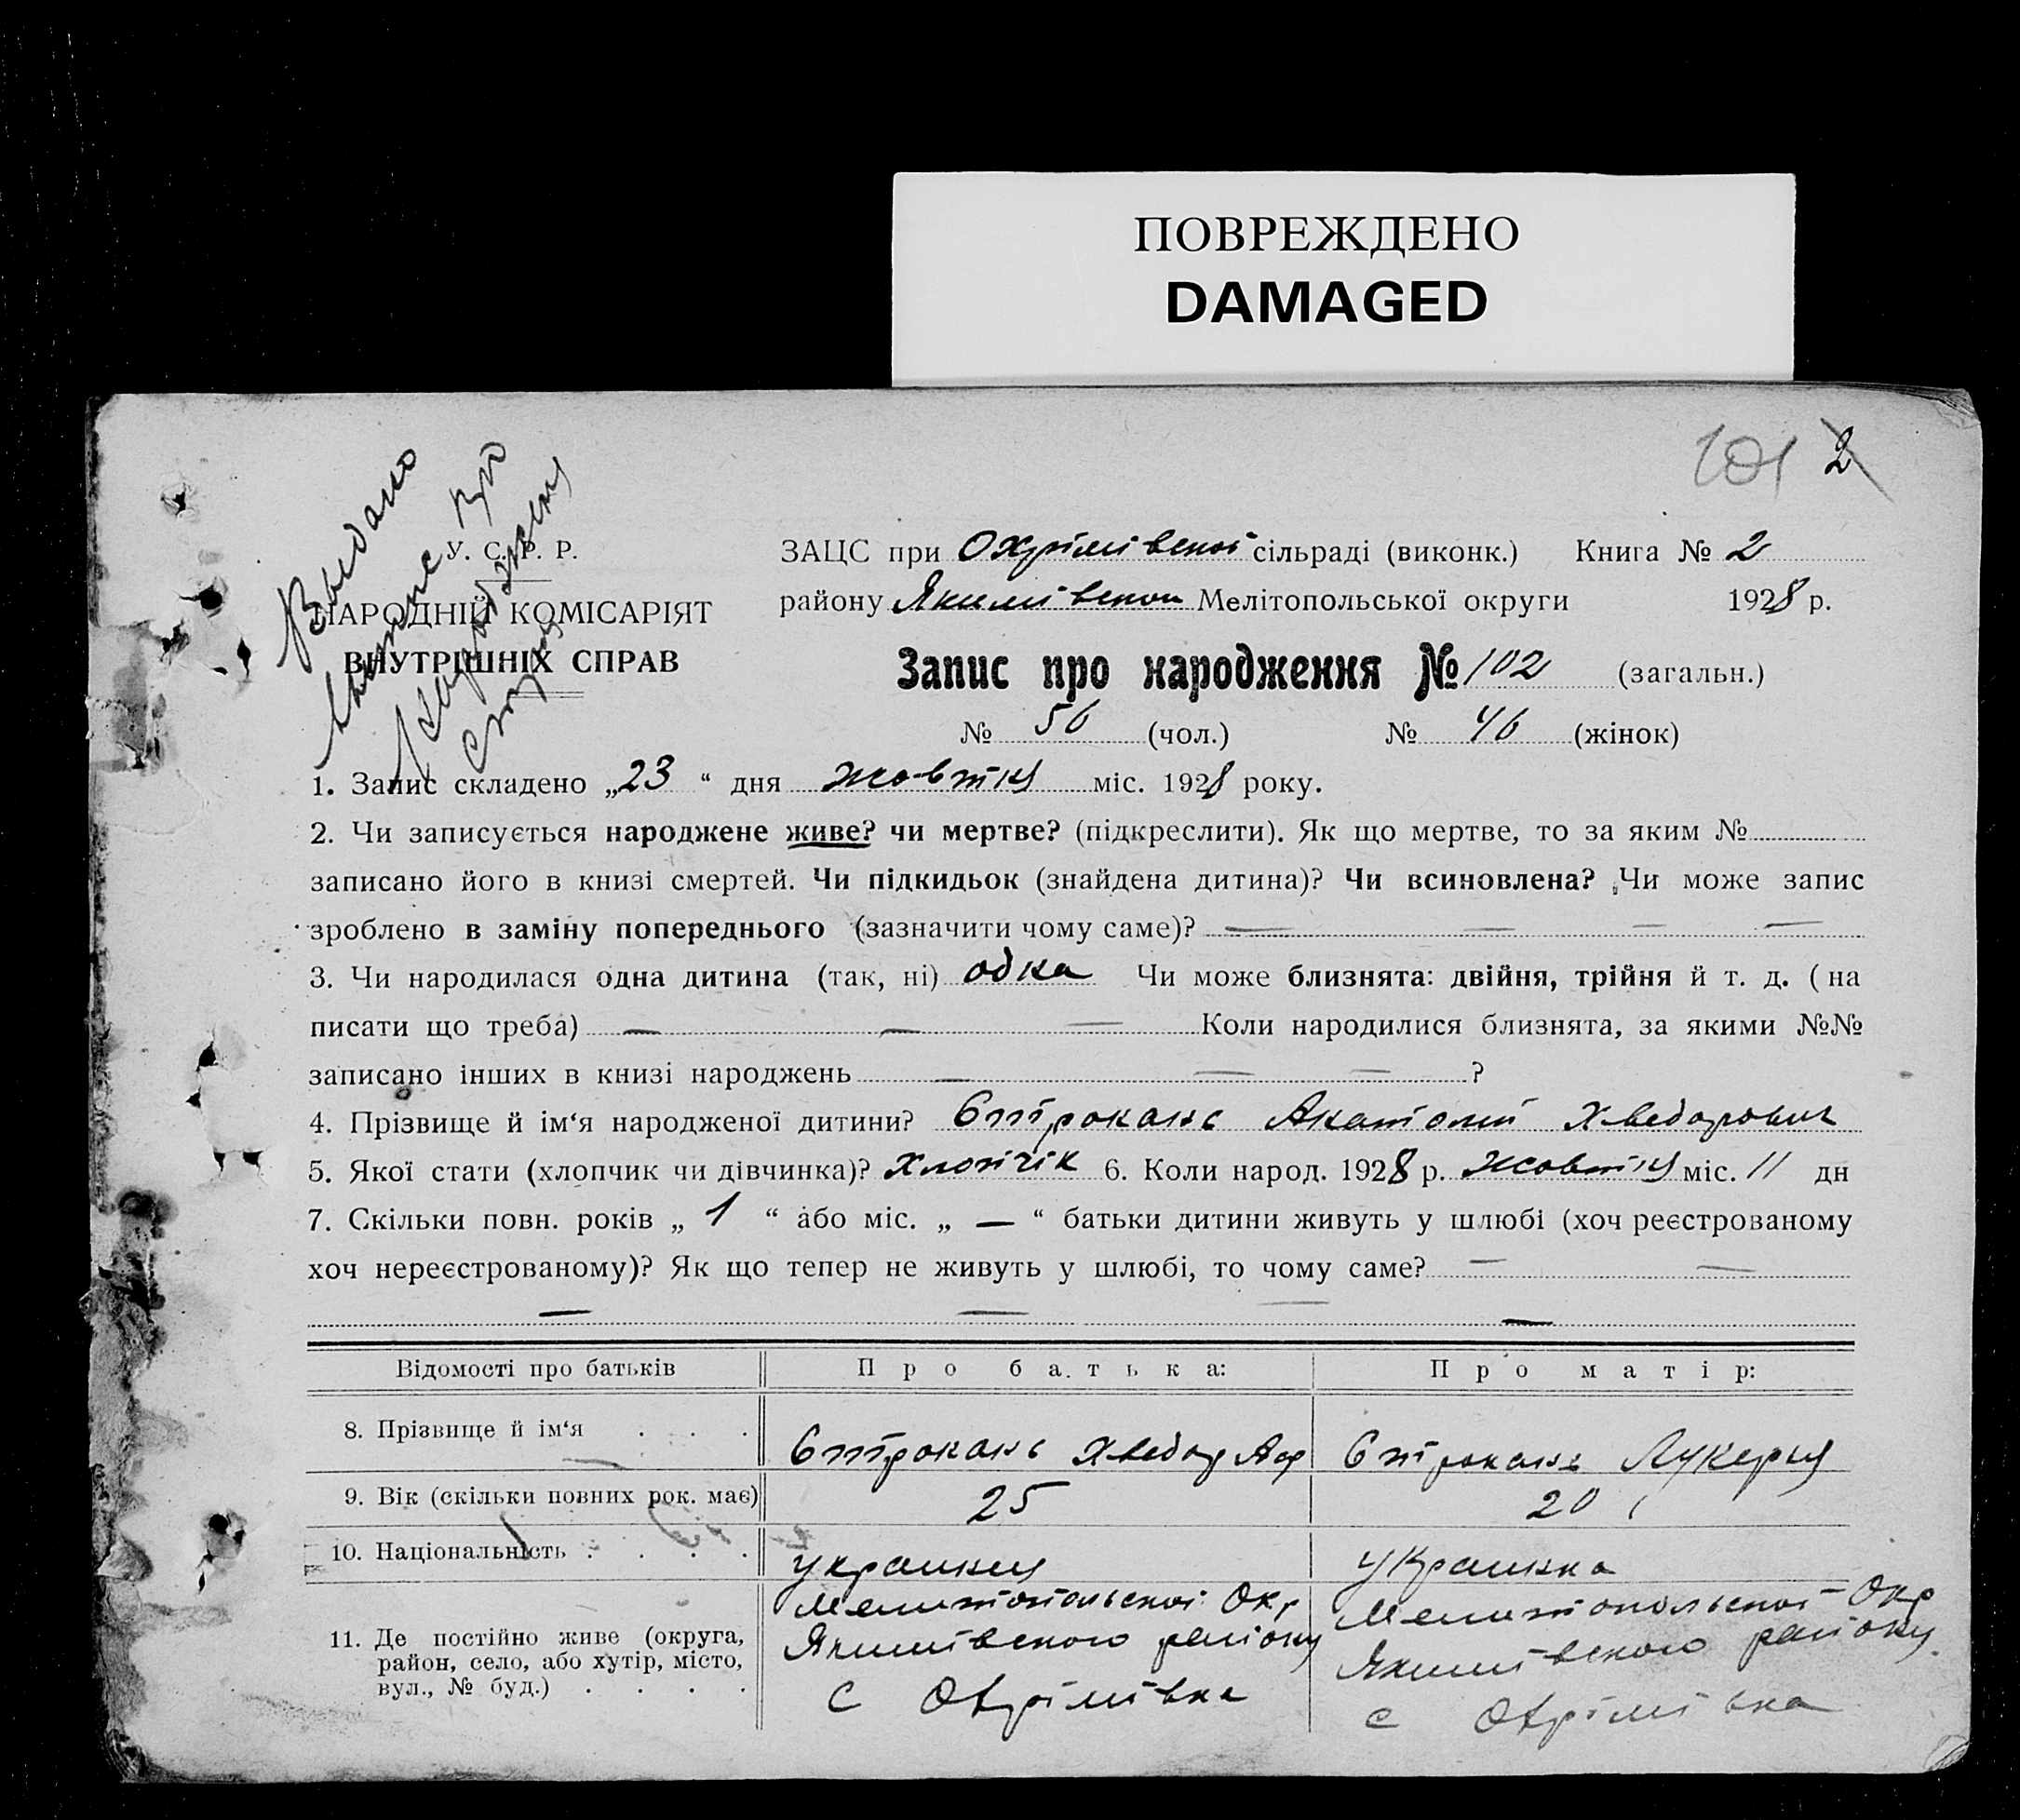 ПОВРЕЖДЕНО
DAMAGED
101 2
Выдано
про
У. С. Р. Р.
НАРОДНІЙ КОМІСАРІЯТ
ВНУТРІШНІХ СПРАВ
ЗАЦС при Охрімівской сільраді (виконк.) Книга № 2
району Якимівском Мелітопольської округи 1928 р.
Запис про народження № 102 (загальн.)
№ 56 (чол.) № 46 (жінок)
1. Запис складено „23“ дня жовтня міс. 1928 року.
2. Чи записується народжене живе? чи мертве? (підкреслити). Як що мертве, то за яким №
записано його в книзі смертей. Чи підкидьок (знайдена дитина)? Чи всиновлена? Чи може запис
зроблено в заміну попереднього (зазначити чому саме)? — — — —
3. Чи народилася одна дитина (так, ні) одна Чи може близнята: двійня, трійня й т. д. (на
писати що треба) — — — Коли народилися близнята, за якими №№
записано інших в книзі народжень — — — ?
4. Прізвище й ім‘я народженої дитини? Строкань Анатолий Хведорович
5. Якої стати (хлопчик чи дівчинка)? Хлопчік 6. Коли народ. 1928 р. жовтня міс. 11 дн
7. Скільки повн. років „ 1 “ або міс. „ — “ батьки дитини живуть у шлюбі (хоч реєстрованому
хоч нереєстрованому)? Як що тепер не живуть у шлюбі, то чому саме? — —
— — — —
Відомості про батьків Про батька: Про матір:
8. Прізвище й ім‘я . . . Строкань Хведор Строкань Лукерия
9. Вік (скільки повних рок. має) 25 20
10. Національність . . . . украинец украинка
11. Де постійно живе (округа, район, село, або хутір, місто, вул., № буд.) . . . .
Мелитопольскої Окр
Якимівского району
с Охрімівка
Мелитопольскої Окр
Якимівского району
с Охрімівка